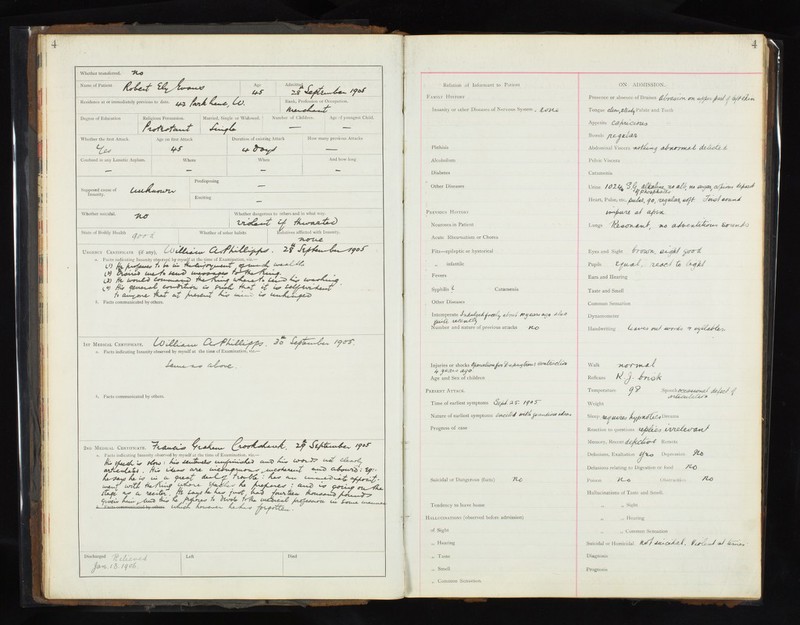 4
Whether transferred. no
Name of Patient. Robert Ely Evans
Age 45
Admitted 28th September 1905
Residence at or immediately previous to date. 43 Park Lane, W.
Rank, Profession or Occupation. Merchant
Degree of Education
Religious Persuasion. Protestant
Married, Single or Widowed. Single
Number of Children. —
Age of youngest Child. —
Whether the first Attack. Yes
Age on first Attack 45
Duration of existing Attack 4 Days
How many previous Attacks —
Confined in any Lunatic Asylum. —
Where —
When —
And how long —
Supposed cause of Insanity. Unknown
Predisposing —
Exciting —
Whether suicidal. no
Whether dangerous to others and in what way. violent if thwarted
State of Bodily Health good
Whether of sober habits
Relatives affected with Insanity. none
Urgency Certificate (if any), William C. Phillipps. 28th September 1905
a. Facts indicating Insanity observed by myself at the time of Examination, viz.—
(1) He professes to be in the enjoyment of
(2) Desired me to send messages to the King.
(3) He would command the King
(4) His general condition is such that it is self evident
to anyone that at present his mind is unhinged
b. Facts communicated by others.
1st Medical Certificate. William C. Phillipps. 30th September 1905
a. Facts indicating Insanity observed by myself at the time of Examination, viz.—
Same as above.
b. Facts communicated by others.
2nd Medical Certificate. Francis Graham Crookshank, 29th September 1905
a. Facts indicating Insanity observed by myself at the time of Examination, viz.—
His speech is slow: his sentences unfinished and his words not clearly
articulated. His ideas are incoherent and absurd: eg:
he says he is in a great deal of trouble: has an immediate appoint-
ment with the King whose he proposes; and is going on the
stage as a rector. He says he has just had fourteen thousand pounds
given him, and this he proposes to devote to the medical profession in some manner
which however he has forgotten.
b. Facts communicated by others.
Discharged Relieved
Jan. 13. 1906
Left
Died
4
Relation of Informant to Patient
Family History
Insanity or other Diseases of Nervous System. none
Phthisis
Alcoholism
Diabetes
Other Diseases
Previous History
Neuroses in Patient
Acute Rheumatism or Chorea
Fits—epileptic or hysterical
" infantile
Fevers
Syphilis ?
Catamenia
Other Diseases
Intemperate
Number and nature of previous attacks no
Injuries or shocks
4 years ago
Age and Sex of children
Present Attack
Time of earliest symptoms Sept 25 1905
Nature of earliest symptoms excited with grandiose ideas
Progress of case
Suicidal or Dangerous (facts) no
Tendency to leave home
Hallucinations (observed before admission)
of Sight
" Hearing
" Taste
" Smell
" Common Sensation
ON ADMISSION.
Presence or absence of Bruises Abrasion on upper part of left shin
Tongue clean, steady Palate and Teeth
Appetite capricious
Bowels regular
Abdominal Viscera nothing abnormal detected
Pelvic Viscera
Catamenia
Urine 1024 alkaline, no alb, no sugar, deposit
of phosphates
Heart, Pulse, etc. pulse 90, regular, soft. First sound
impure at apex
Lungs Resonant, no adventitious sounds
Eyes and Sight brown, sight good
Pupils equal, react to light
Ears and Hearing
Taste and Smell
Common Sensation
Dynamometer
Handwriting leaves out words & syllables
Walk normal
Reflexes K.J. brisk
Temperature 98
Speech occasional defect of
articulation
Weight
Sleep requires hypnotics Dreams
Reaction to questions replies irrelevant
Memory, Recent defective Remote
Delusions, Exaltation yes Depression no
Delusions relating to Digestion or food no
Fusion no
no
Hallucinations of Taste and Smell
" " Sight
" " Hearing
" " Common Sensation
Suicidal or Homicidal Not suicidal. Violent at times
Diagnosis
Prognosis